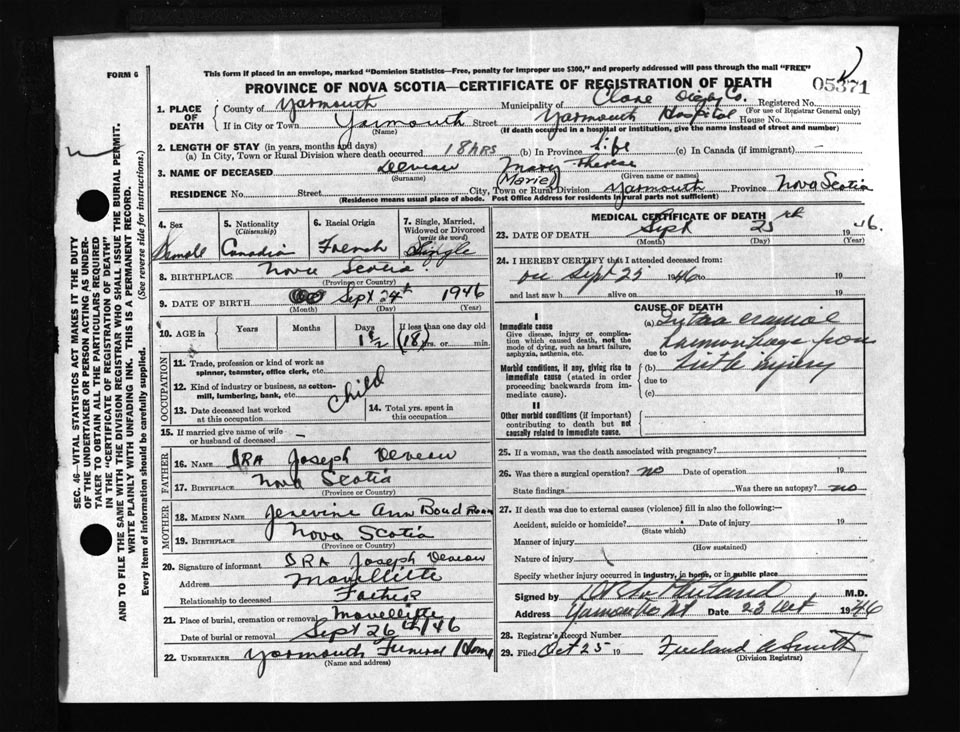 FORM 6
This form if placed in an envelope, marked "Dominion Statistics—Free, penalty for improper use $300," and properly addressed will pass through the mail "FREE"
PROVINCE OF NOVA SCOTIA—CERTIFICATE OF REGISTRATION OF DEATH
05371
SEC. 46—VITAL STATISTICS ACT MAKES IT THE DUTY
OF THE UNDERTAKER OR PERSON ACTING AS UNDER-
TAKER TO OBTAIN ALL THE PARTICULARS REQUIRED
IN THE "CERTIFICATE OF REGISTRATION OF DEATH"
AND TO FILE THE SAME WITH THE DIVISION REGISTRAR WHO SHALL ISSUE THE BURIAL PERMIT.
WRITE PLAINLY WITH UNFADING INK. THIS IS A PERMANENT RECORD.
Every item of information should be carefully supplied. (See reverse side for instructions.)
1. PLACE OF DEATH
County of Yarmouth Municipality of Clare Digby Co. Registered No.
(For use of Registrar General only)
If in City or Town Yarmouth Street Yarmouth Hospital House No.
(Name) (If death occurred in a hospital or institution, give the name instead of street and number)
2. LENGTH OF STAY (in years, months and days)
(a) In City, Town or Rural Division where death occurred 18 HRS (b) In Province Life (c) In Canada (if immigrant)
3. NAME OF DECEASED Deveau Mary Therese
(Surname) (Marie) (Given name or names)
RESIDENCE No. Street City, Town or Rural Division Yarmouth Province Nova Scotia
(Residence means usual place of abode. Post Office Address for residents in rural parts not sufficient)
4. Sex
Female
5. Nationality
(Citizenship)
Canadian
6. Racial Origin
French
7. Single, Married,
Widowed or Divorced
(write the word)
Single
8. BIRTHPLACE Nova Scotia
(Province or Country)
9. DATE OF BIRTH Sept 24th 1946
(Month) (Day) (Year)
10. AGE in Years Months Days If less than one day old
(18) hrs. or min.
OCCUPATION
11. Trade, profession or kind of work as
spinner, teamster, office clerk, etc.
12. Kind of industry or business, as cotton-
mill, lumbering, bank, etc.
Child
13. Date deceased last worked
at this occupation
14. Total yrs. spent in
this occupation
15. If married give name of wife
or husband of deceased —
FATHER
16. NAME IRA Joseph Deveau
17. BIRTHPLACE Nova Scotia
(Province or Country)
MOTHER
18. MAIDEN NAME Jenevine Ann
19. BIRTHPLACE Nova Scotia
(Province or Country)
20. Signature of informant IRA Joseph Deveau
Address Mavillette
Relationship to deceased Father
21. Place of burial, cremation or removal Mavillette
Date of burial or removal Sept 26th/46
22. UNDERTAKER Yarmouth Funeral Home
(Name and address)
MEDICAL CERTIFICATE OF DEATH
23. DATE OF DEATH Sept 25 19 46
(Month) (Day) (Year)
24. I HEREBY CERTIFY that I attended deceased from:
on Sept 25 1946 to 19
and last saw h alive on 19
CAUSE OF DEATH
I
Immediate cause
Give disease, injury or complica-
tion which caused death, not the
mode of dying, such as heart failure,
asphyxia, asthenia, etc.
(a) Intra cranial
haemorrhage from
due to
Morbid conditions, if any, giving rise to
immediate cause (stated in order
proceeding backwards from im-
mediate cause).
(b) birth injury
due to
(c)
II
Other morbid conditions (if important)
contributing to death but not
causally related to immediate cause.
25. If a woman, was the death associated with pregnancy?
26. Was there a surgical operation? no Date of operation 19
State findings Was there an autopsy? no
27. If death was due to external causes (violence) fill in also the following:—
Accident, suicide or homicide? Date of injury 19
(State which)
Manner of injury
(How sustained)
Nature of injury
Specify whether injury occurred in industry, in home, or in public place
Signed by M.D.
Address Yarmouth NS Date 23 Oct 1946
28. Registrar's Record Number
29. Filed Oct 25 19 Freeland A Smith
(Division Registrar)